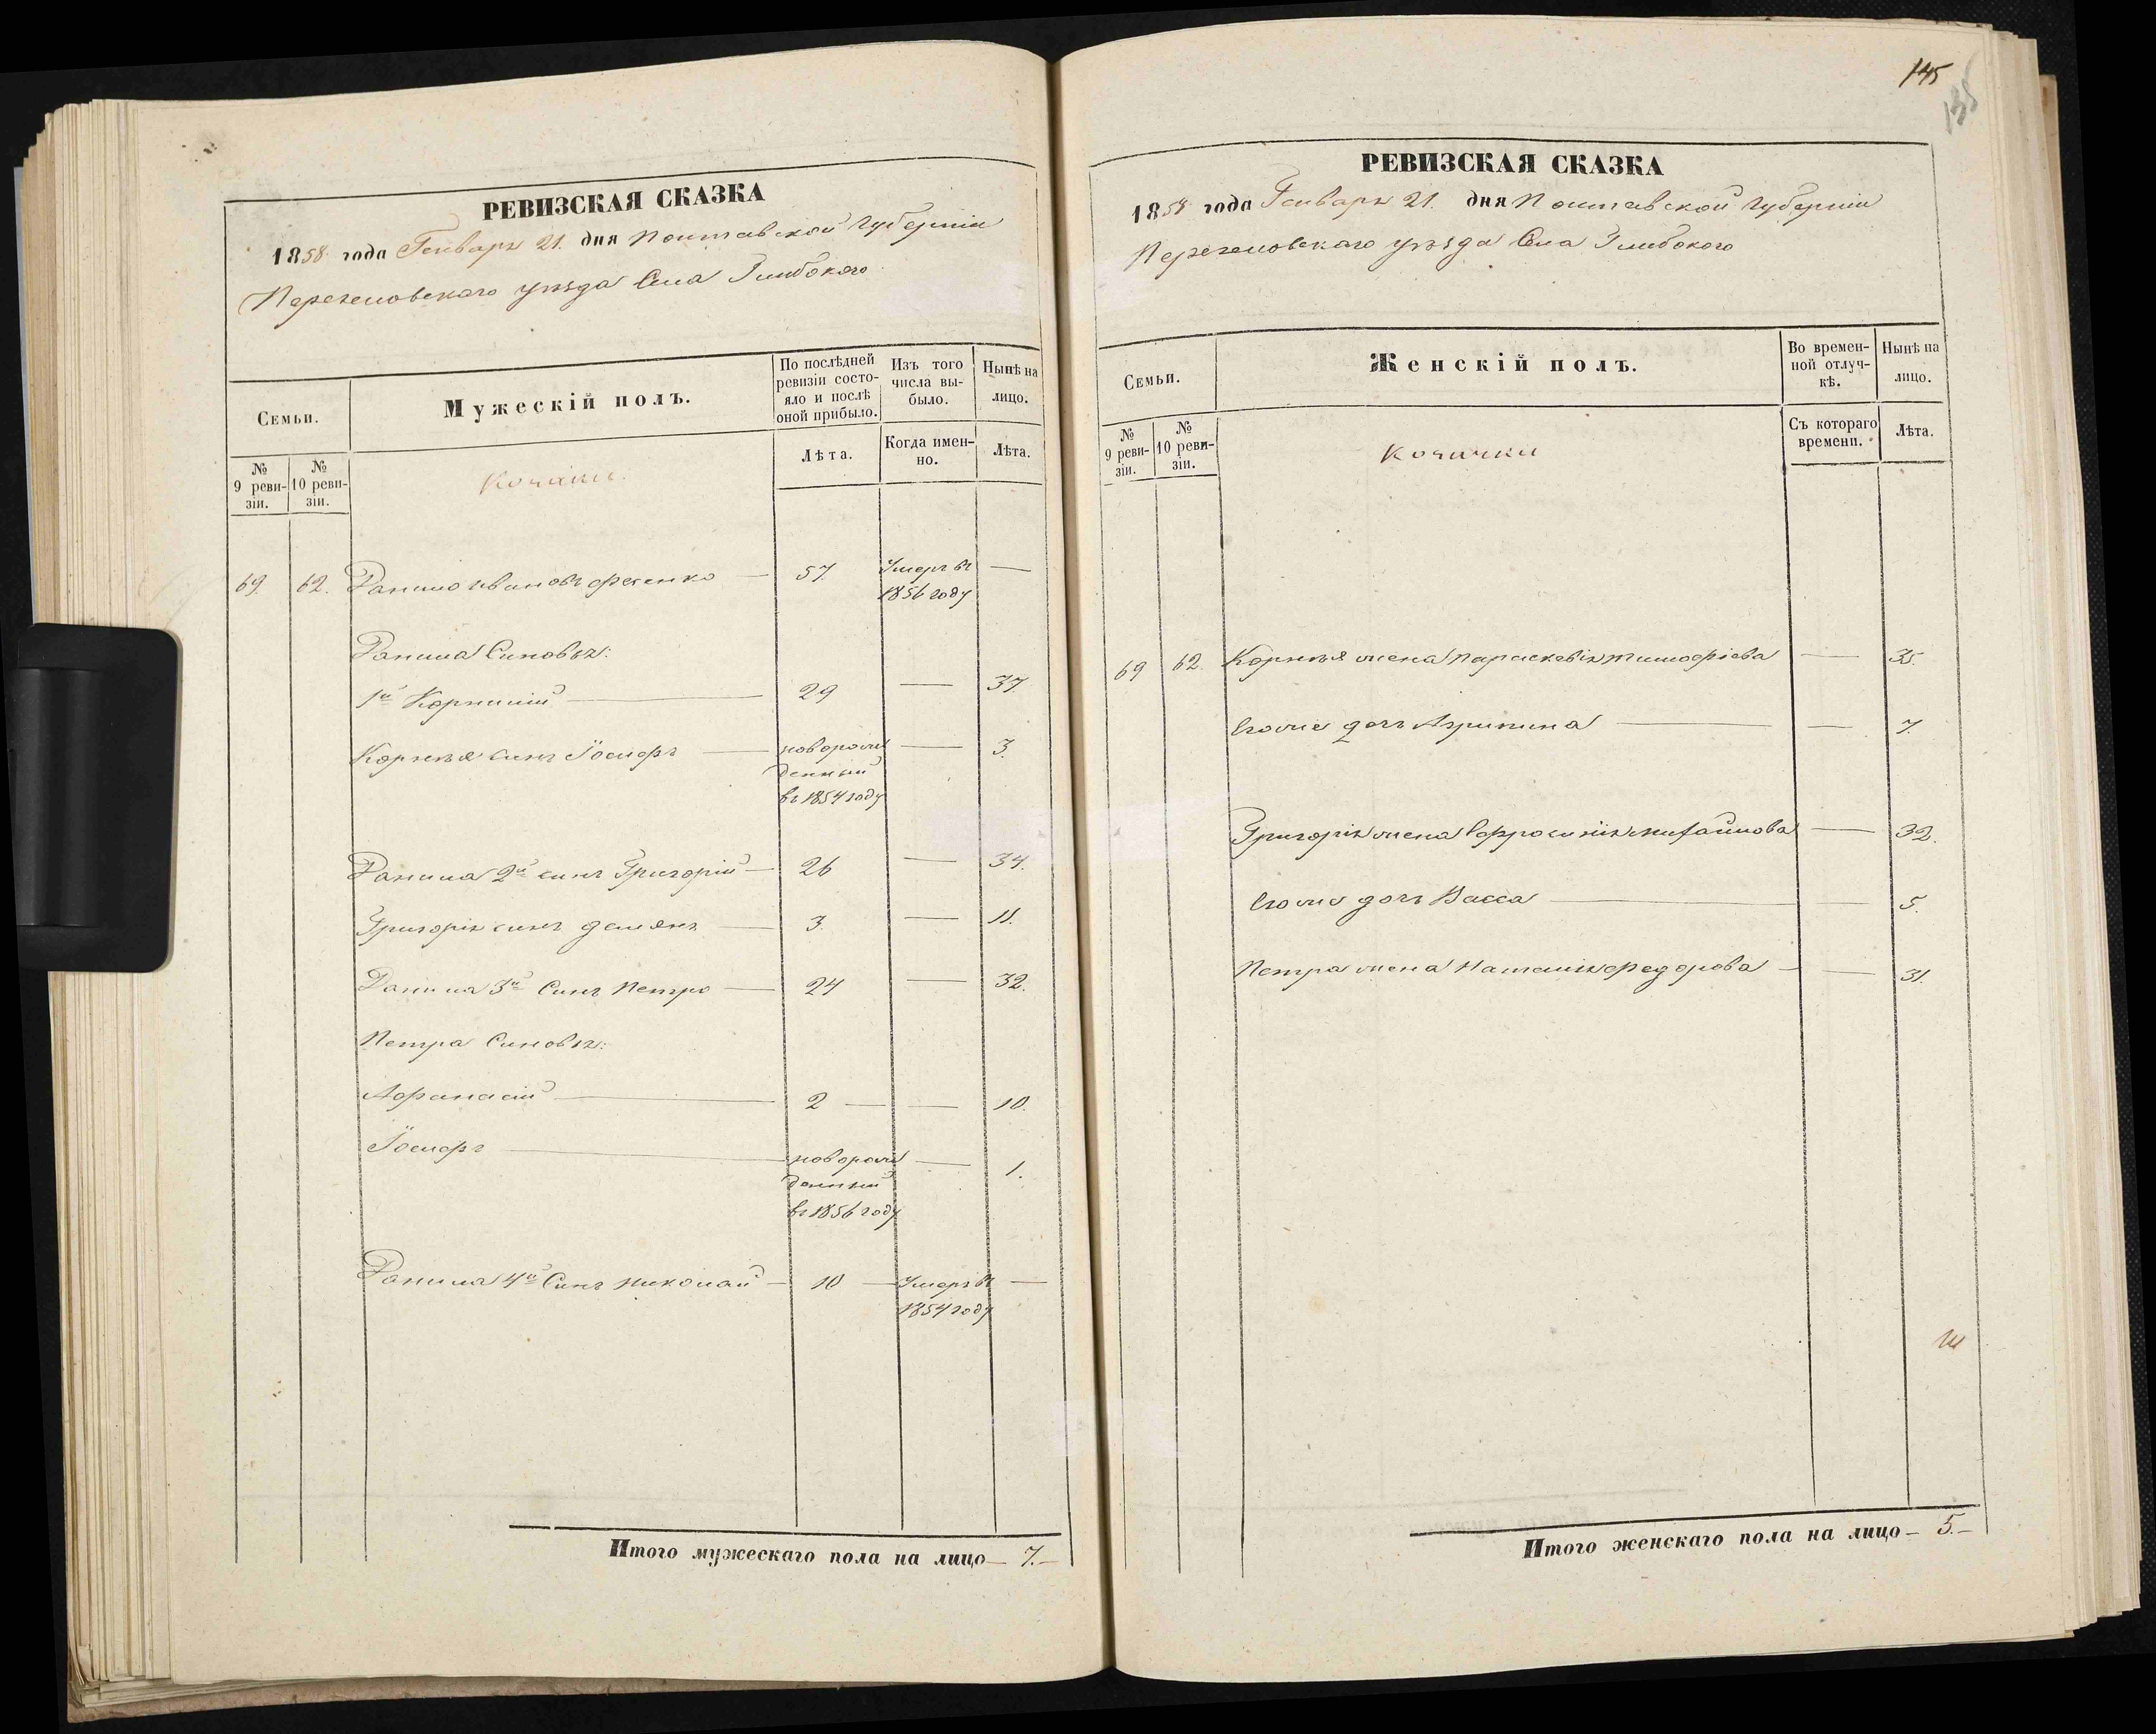 РЕВИЗСКАЯ СКАЗКА
1858 года Генваря 21. дня Полтавской Губерніи
Переяловскаго уѣзда Села Глибокого
Семьи.
Мужескій полъ.
По послѣдней ревизіи состояло и послѣ оной прибыло.
Изъ того числа выбыло.
Нынѣ на лицо.
№ 9 ревизіи.
№ 10 ревизіи.
Козаки.
Лѣта.
Когда именно.
Лѣта.
69. 62. Данило Ивановъ Фесенко — 57. Умеръ въ —
1856 году
Данила Синовья:
1й Корнилій — 29 — 37
Корнѣя синъ Іосифъ — новорож — 3.
денный
въ 1854 году
Данила 2й синъ Григорій — 26 — 34.
Григорія синъ Демянъ — 3. — 11.
Данила 3й Синъ Петро — 24 — 32.
Петра Синовья:
Афанасій — 2 — — 10.
Іосифъ — новорож — 1.
денный
въ 1856 году
Данила 4й Синъ Николай — 10 — Умеръ въ —
1854 году
Итого мужескаго пола на лицо — 7. —
145
135
РЕВИЗСКАЯ СКАЗКА
1858 года Генваря 21. дня Полтавской Губерніи
Переяловскаго уѣзда Села Глибокого
Семьи.
Женскій полъ.
Во временной отлучкѣ.
Нынѣ на лицо.
№ 9 ревизіи.
№ 10 ревизіи.
Козачки
Съ котораго времени.
Лѣта.
69 62. Корнѣя жена Параскевія Тимофіева — 35.
Его же дочь Агрипина — — 7.
Григорія жена Ефросинія Михайлова — 32.
Его же дочь Васса — — 5.
Петра жена Наталія Федорова — — 31.
Итого женскаго пола на лицо — 5. —